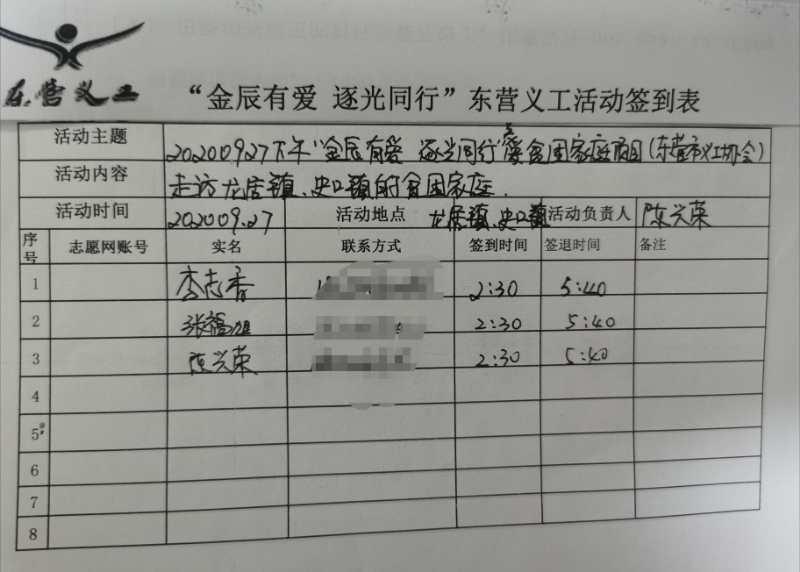 东营义工
“金辰有爱 逐光同行”东营义工活动签到表
活动主题 20200927下午“金辰有爱 逐光同行”贫困家庭项目(东营市义工协会)
活动内容 走访龙居镇、史口镇的贫困家庭.
活动时间 20200927 活动地点 龙居镇、史口镇 活动负责人 陈兴荣
序号 志愿网账号 实名 联系方式 签到时间 签退时间 备注
1 李志香 2:30 5:40
2 张福 2:30 5:40
3 陈兴荣 2:30 5:40
4
5
6
7
8